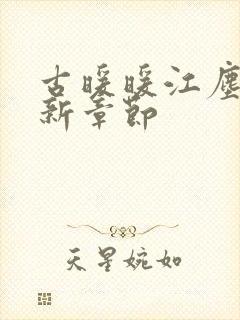 古暖暖江尘
新章节
天星婉如